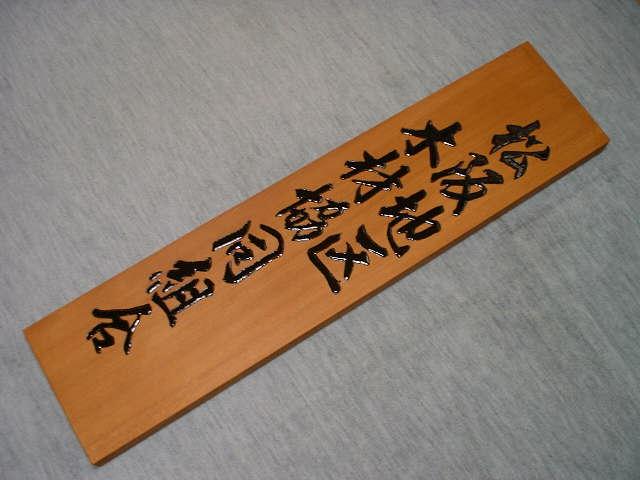 松阪地区
木材協同組合